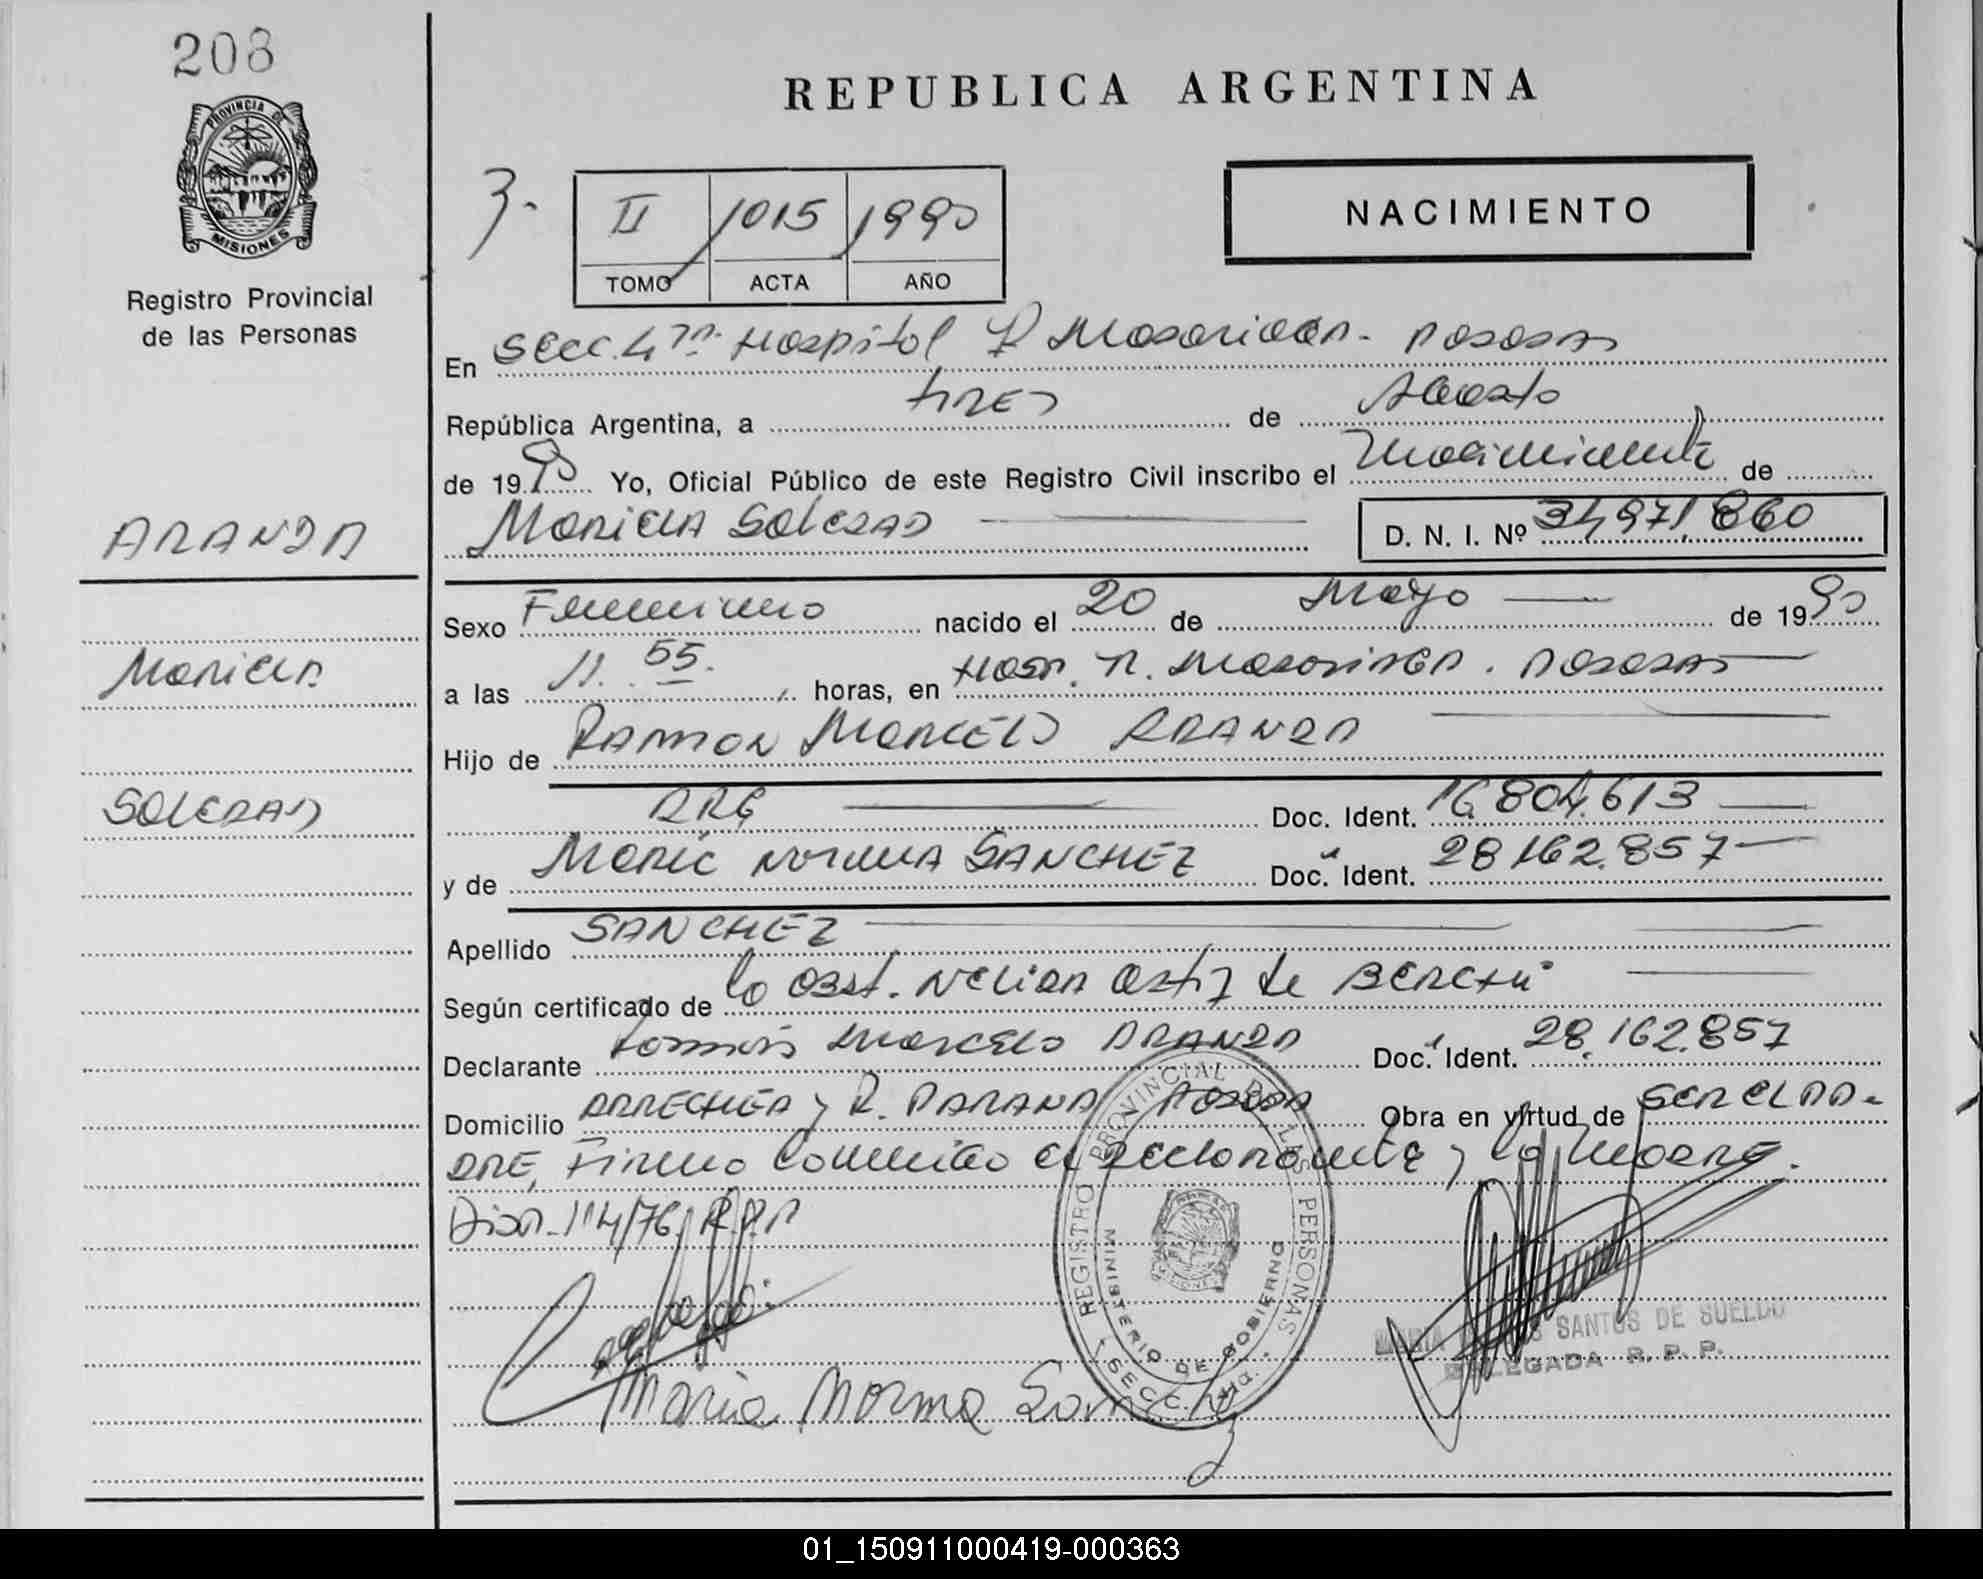 208
PROVINCIA DE
MISIONES
Registro Provincial
de las Personas
REPUBLICA ARGENTINA
3.
II 1015 1990
TOMO ACTA AÑO
NACIMIENTO
En Secc. 4ta Hospital R Madariaga - Posadas
República Argentina, a tres de Agosto
de 1990 Yo, Oficial Público de este Registro Civil inscribo el Nacimiento de
ARANDA Mariela SOLEDAD D. N. I. Nº 34,971,860
Sexo Femenino nacido el 20 de Mayo de 1990
Mariela a las 11. 55. horas, en Hosp. R. Madariaga. Posadas
Hijo de RAMON MARCELO ARANDA
SOLEDAD ARG Doc. Ident. 16.804.613
y de Maria NORMA SANCHEZ Doc. Ident. 28.162.857
Apellido SANCHEZ
Según certificado de la Obst. Nelida Ortiz de
Declarante Marcelo ARANDA Doc. Ident. 28.162.857
Domicilio ARRECHEA y R. PARANA Posadas Obra en virtud de ser el PA-
DRE, Firma conmigo el declarante y la madre.
Disp. 114/76 R.P.P
REGISTRO PROVINCIAL DE LAS PERSONAS
MINISTERIO DE GOBIERNO
SECC. 4ta.
SANTOS DE SUELDO
DELEGADA R. P. P.
Maria Norma Sanchez
01_150911000419-000363